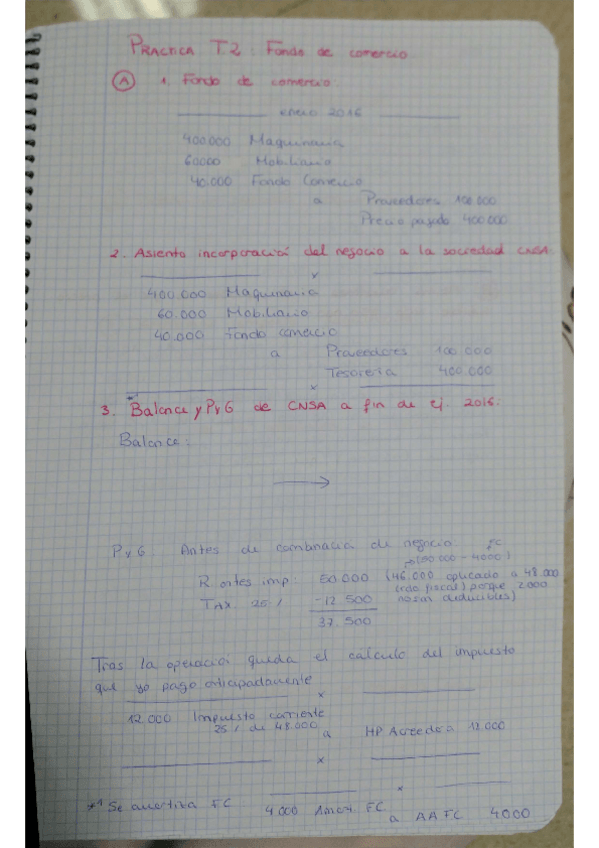 PRACTICA T.2 : Fondo de comercio
A 1. Fondo de comercio:
enero 2016
400.000 Maquinaria
60000 Mobiliario
40.000 Fondo Comercio
a Proveedores 100.000
Precio pagado 400.000
2. Asiento incorporación del negocio a la sociedad CNSA.
x
400.000 Maquinaria
60.000 Mobiliario
40.000 Fondo comercio
a Proveedores 100.000
Tesorería 400.000
x
3. Balance y PyG de CNSA a fin de ej. 2016.
Balance:
→
PyG Antes de combinación de negocio. FC
(50.000 - 4000)
R. antes imp: 50.000 (46.000 aplicado a 48.000
(rdo fiscal) porque 2.000
TAX 25% -12.500 no son deducibles)
37.500
Tras la operación queda el cálculo del impuesto
que yo pago anticipadamente
x
12.000 Impuesto corriente
25% de 48.000 a HP Acreedora 12.000
x
x
*1 Se amortiza F.C 4.000 Amort. F.C
a AA F.C 4.000